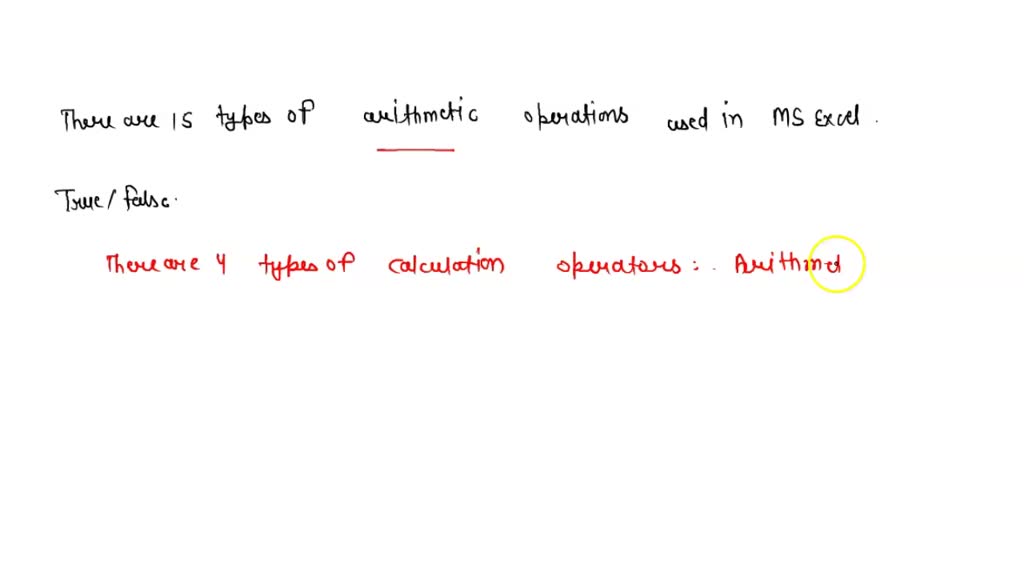 There are 15 types of arithmetic operations used in MS Excel .
True / false.
There are 4 types of calculation operators : . Arithmet